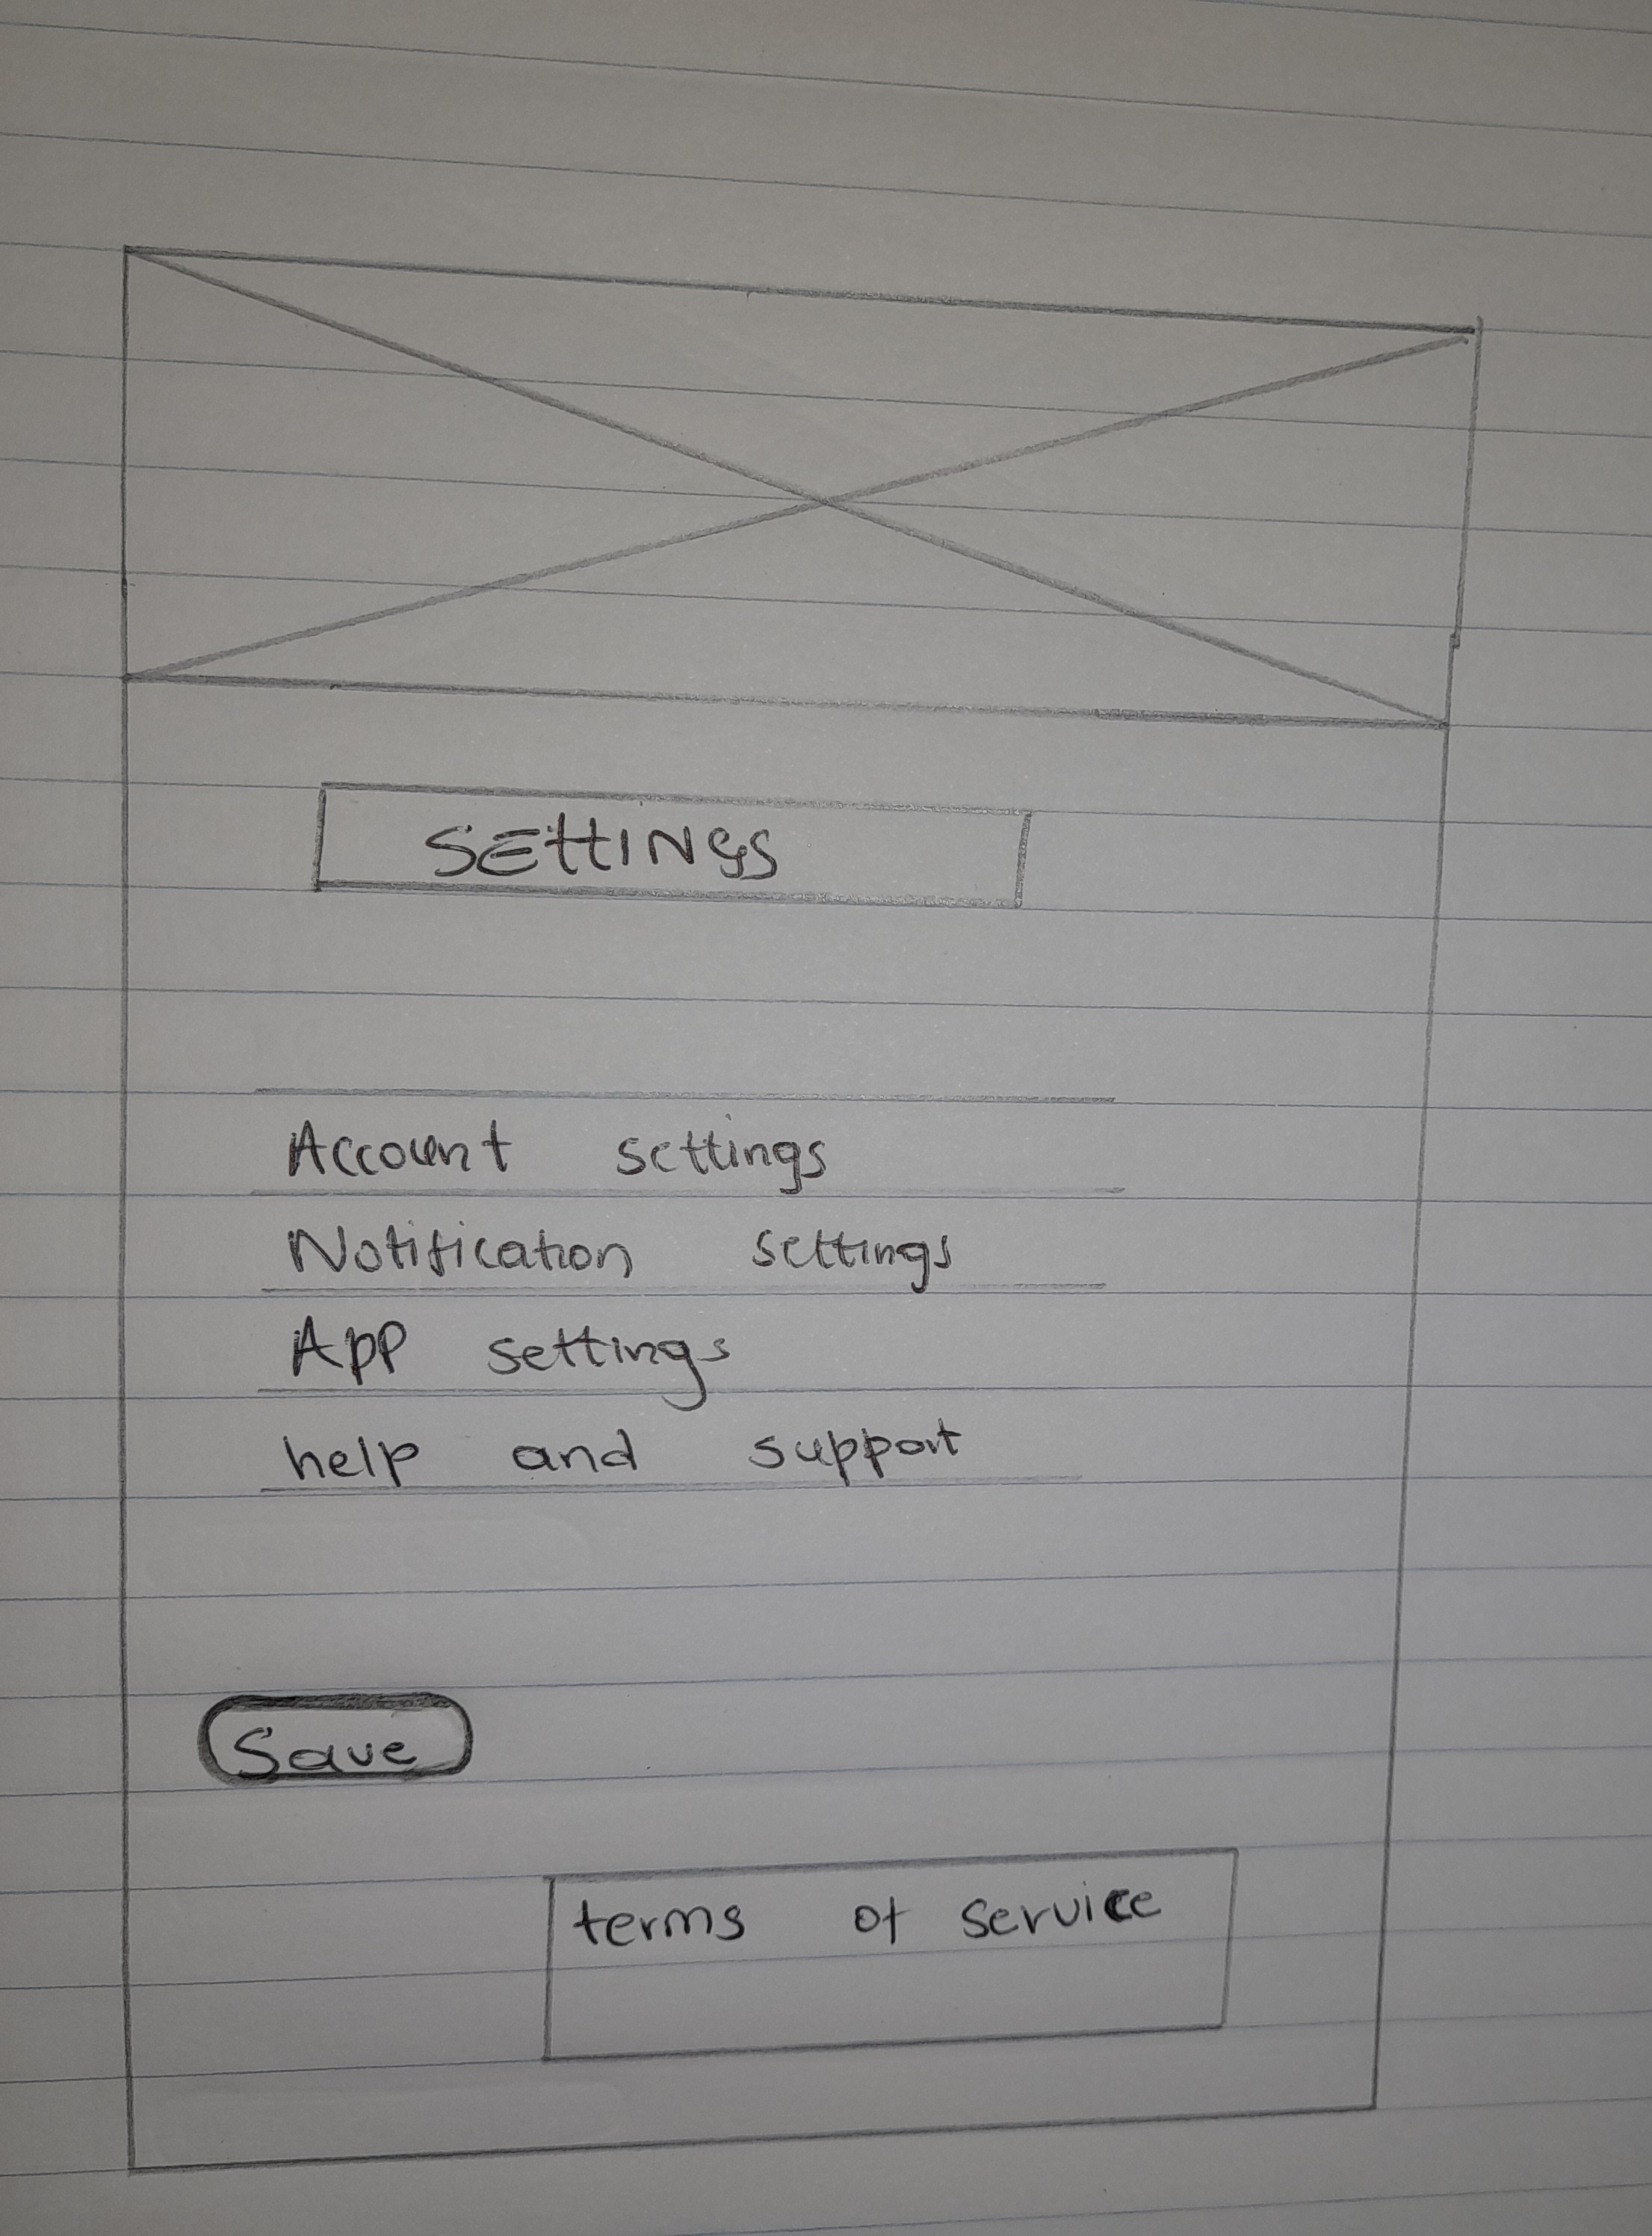 SETTINGS
Account settings
Notification settings
App settings
help and support
Save
terms of service